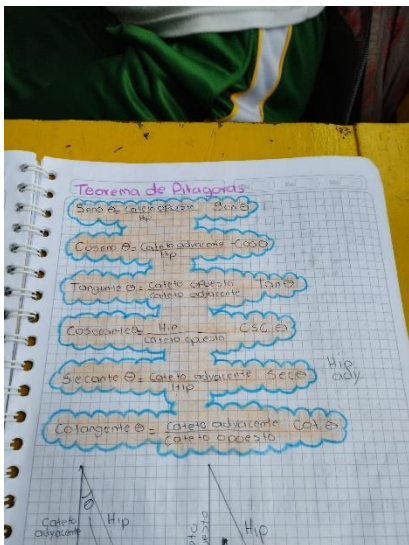 Teorema de Pitagoras
Seno θ = cateto opuesto Sen θ
Hip
Coseno θ = cateto adyacente Cos θ
Hip
Tangente θ = cateto opuesto Tan θ
cateto adyacente
Cosecante = Hip CSC θ
cateto opuesto
Secante θ = cateto adyacente Sec θ
Hip
Hip
ady
Cotangente θ = cateto adyacente Cot θ
cateto opuesto
θ
Cateto
adyacente
Hip
Hip